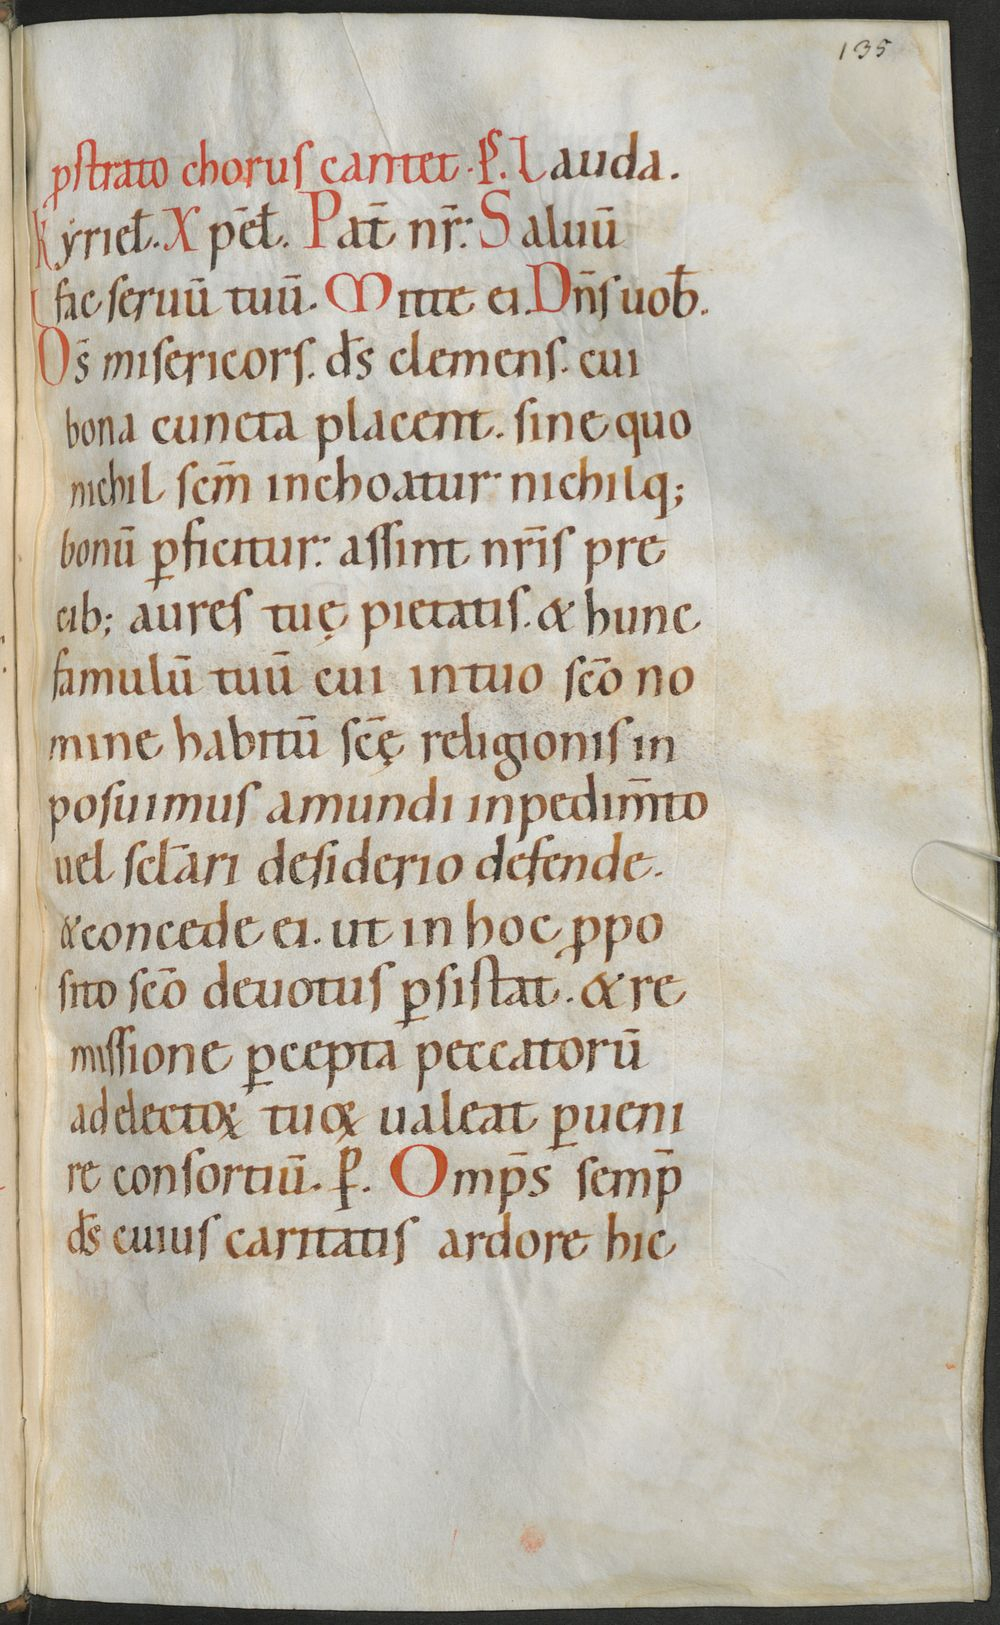 135
ꝓstrato chorus cantet. p̄s. Lauda.
Kyriel̄. Xp̄el̄. Pat̄ nr̄. Saluū
fac seruū tuū. Mitte ei. Dn̄s uob̄.
Ds̄ misericors. ds̄ clemens. cui
bona cuncta placent. sine quo
nichil sc̄m inchoatur nichilq;
bonū ꝑficitur. assint nr̄is pre
cib; aures tuę pietatis. & hunc
famulū tuū cui in tuo sc̄o no
mine habitū sc̄ę religionis in
posuimus a mundi inpedim̄to
uel scl̄ari desiderio defende.
& concede ei. ut in hoc ꝓpo
sito sc̄o deuotus ꝑsistat. & re
missione ꝑcepta peccatorū
ad electoꝝ tuoꝝ ualeat ꝑueni
re consortiū. ꝑ. Omp̄s semp̄
ds̄ cuius caritatis ardore hic